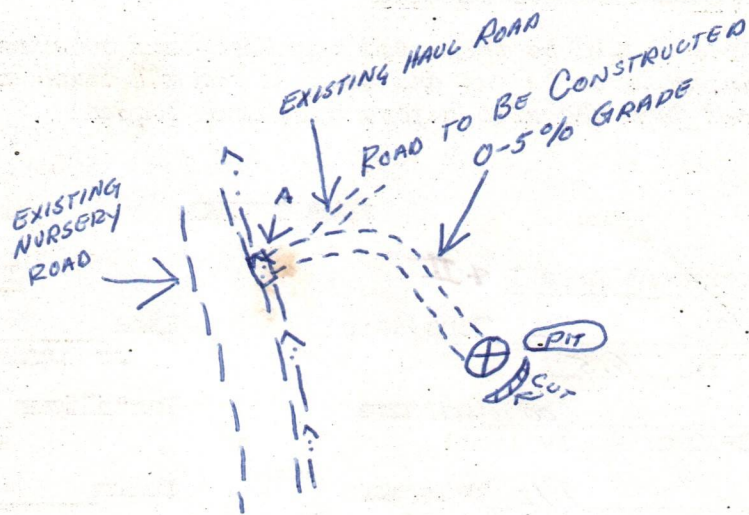 EXISTING HAUL ROAD
ROAD TO BE CONSTRUCTED
0-5% GRADE
EXISTING
NURSERY
ROAD
A
PIT
CUT